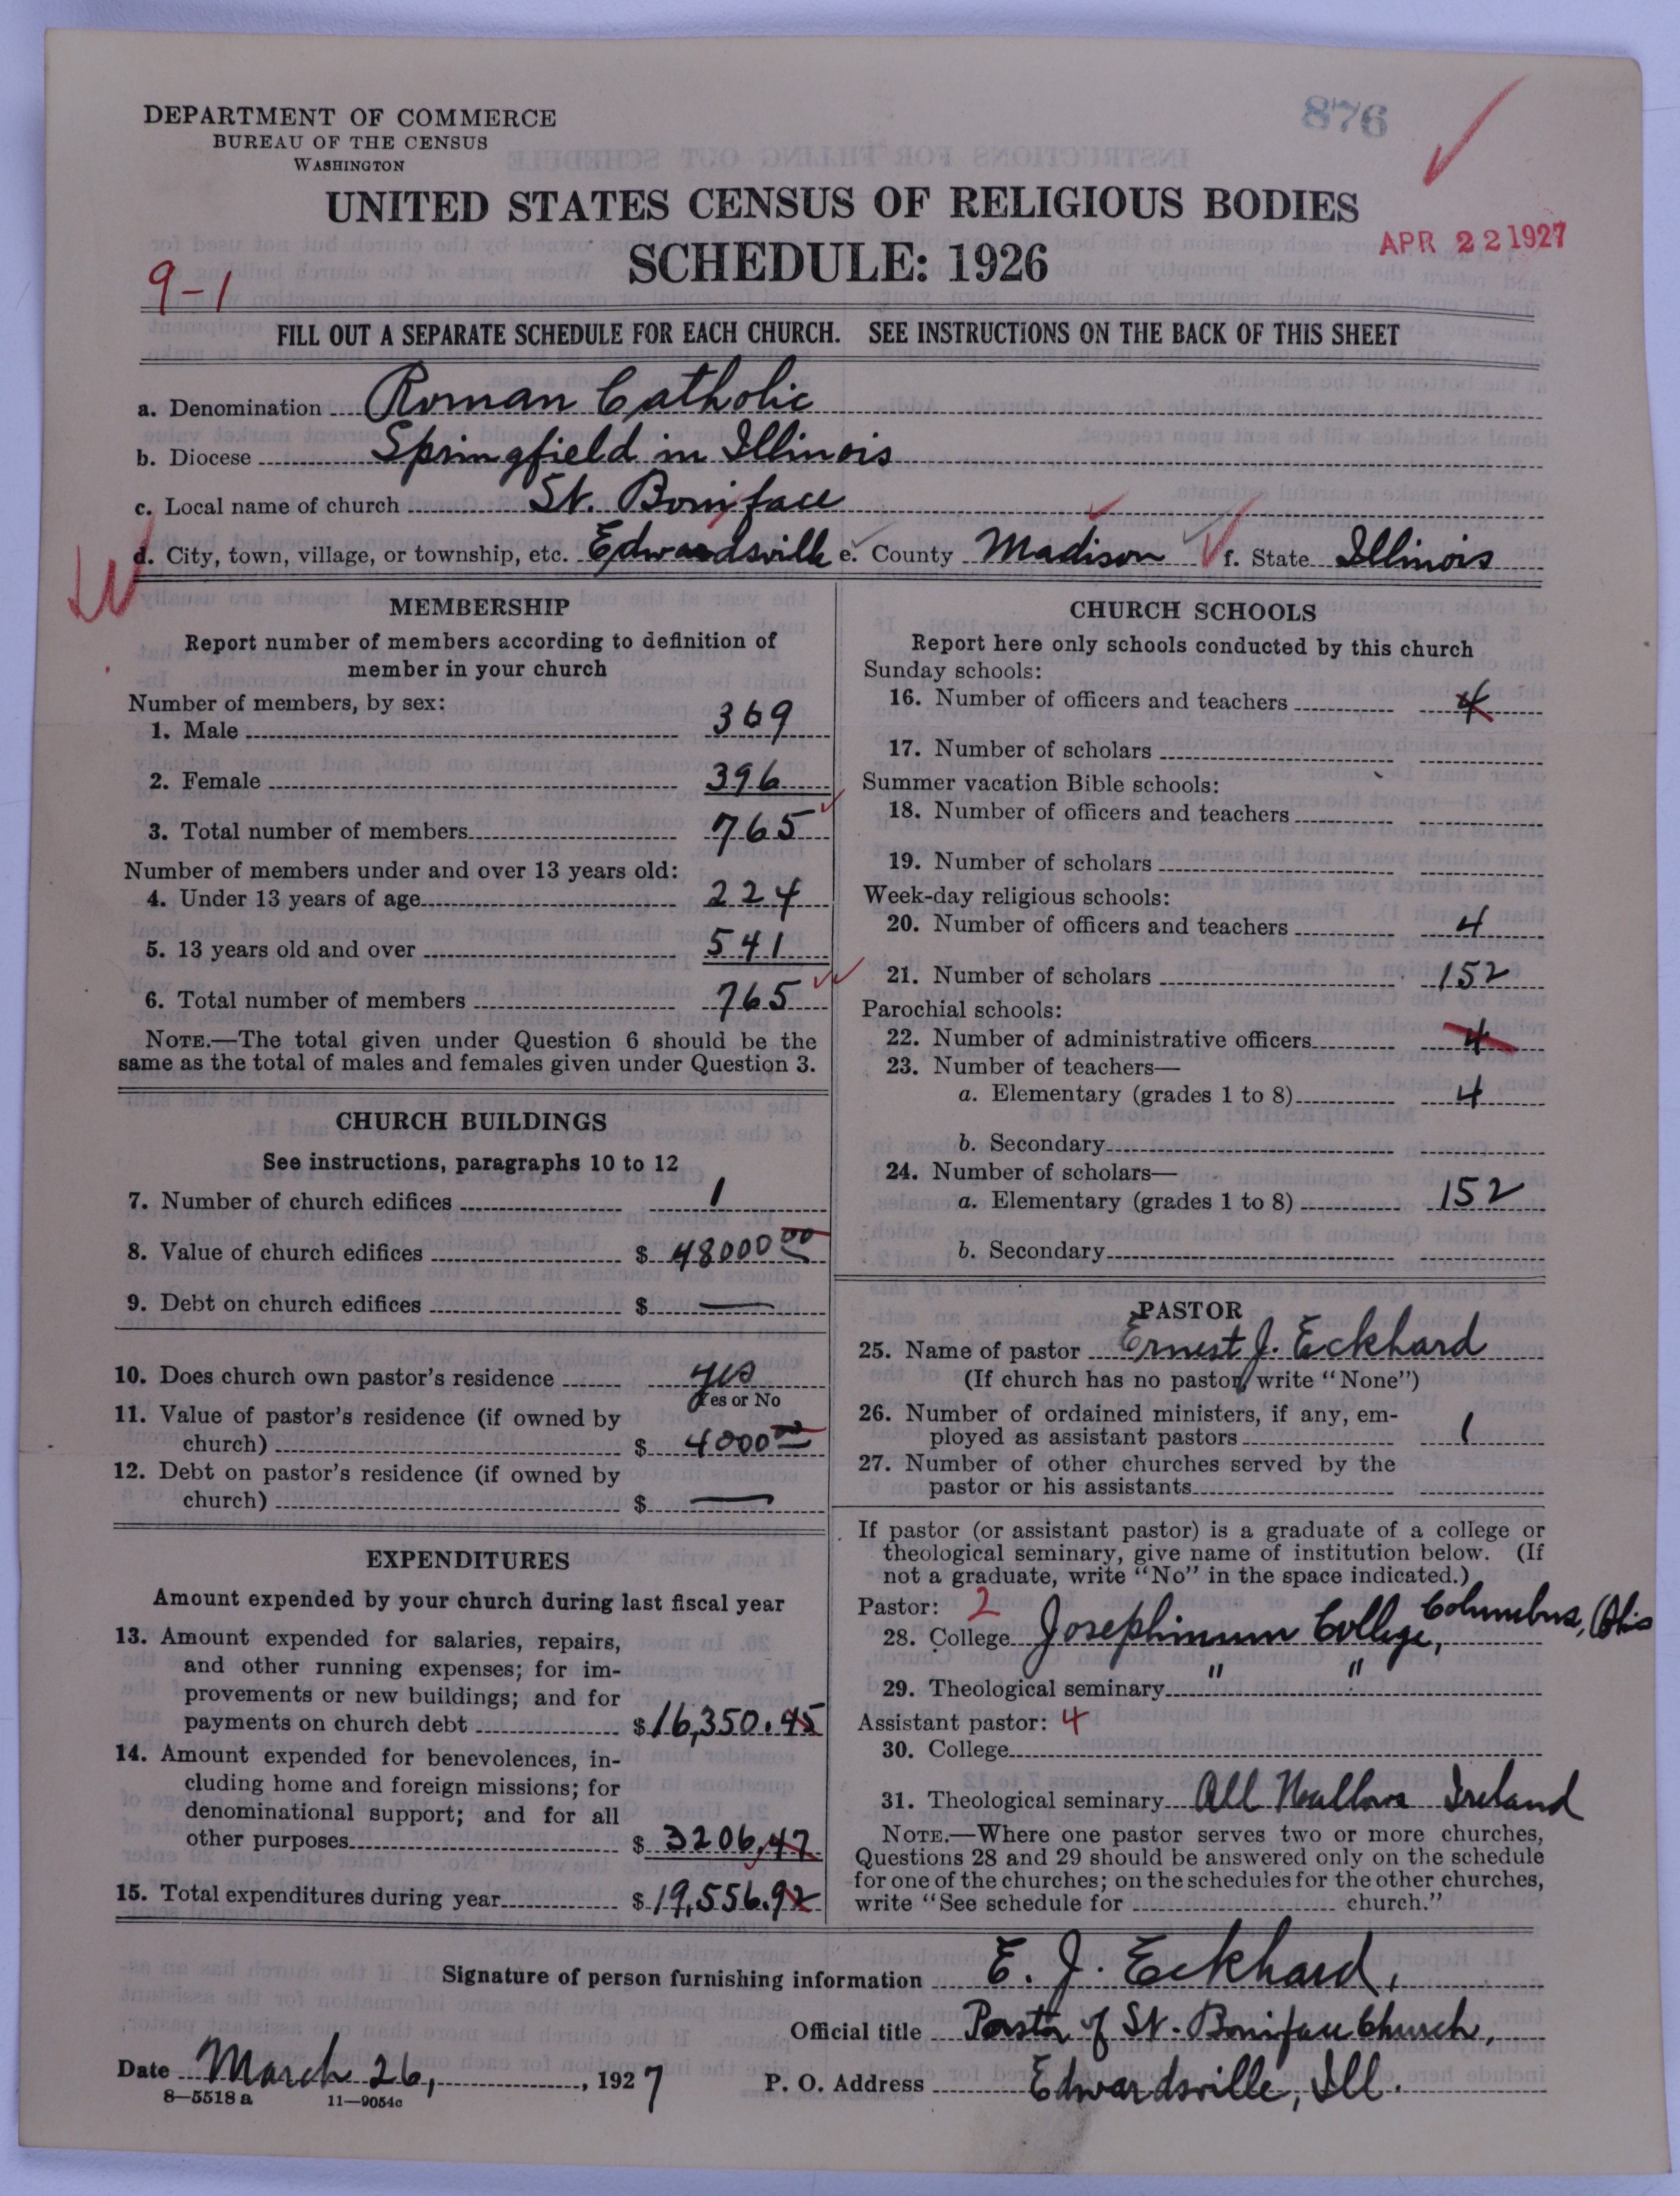 DEPARTMENT OF COMMERCE
BUREAU OF THE CENSUS
WASHINGTON
876
UNITED STATES CENSUS OF RELIGIOUS BODIES
SCHEDULE: 1926
APR 22 1927
9-1
FILL OUT A SEPARATE SCHEDULE FOR EACH CHURCH. SEE INSTRUCTIONS ON THE BACK OF THIS SHEET
a. Denomination Roman Catholic
b. Diocese Springfield in Illinois
c. Local name of church St. Boniface
d. City, town, village, or township, etc. Edwardsville e. County Madison f. State Illinois
MEMBERSHIP
Report number of members according to definition of
member in your church
Number of members, by sex:
1. Male 369
2. Female 396
3. Total number of members 765
Number of members under and over 13 years old:
4. Under 13 years of age 224
5. 13 years old and over 541
6. Total number of members 765
NOTE.—The total given under Question 6 should be the
same as the total of males and females given under Question 3.
CHURCH BUILDINGS
See instructions, paragraphs 10 to 12
7. Number of church edifices 1
8. Value of church edifices $ 48000 00
9. Debt on church edifices $ —
10. Does church own pastor's residence yes
Yes or No
11. Value of pastor's residence (if owned by
church) $ 4000 00
12. Debt on pastor's residence (if owned by
church) $ —
EXPENDITURES
Amount expended by your church during last fiscal year
13. Amount expended for salaries, repairs,
and other running expenses; for im-
provements or new buildings; and for
payments on church debt $ 16,350.45
14. Amount expended for benevolences, in-
cluding home and foreign missions; for
denominational support; and for all
other purposes $ 3206,47
15. Total expenditures during year $ 19,556.92
CHURCH SCHOOLS
Report here only schools conducted by this church
Sunday schools:
16. Number of officers and teachers 4
17. Number of scholars
Summer vacation Bible schools:
18. Number of officers and teachers
19. Number of scholars
Week-day religious schools:
20. Number of officers and teachers 4
21. Number of scholars 152
Parochial schools:
22. Number of administrative officers 4
23. Number of teachers—
a. Elementary (grades 1 to 8) 4
b. Secondary
24. Number of scholars—
a. Elementary (grades 1 to 8) 152
b. Secondary
PASTOR
25. Name of pastor Ernest J. Eckhard
(If church has no pastor, write "None")
26. Number of ordained ministers, if any, em-
ployed as assistant pastors 1
27. Number of other churches served by the
pastor or his assistants
If pastor (or assistant pastor) is a graduate of a college or
theological seminary, give name of institution below. (If
not a graduate, write "No" in the space indicated.)
Pastor: 2
28. College Josephinum College, Columbus, Ohio
29. Theological seminary " "
Assistant pastor: 4
30. College
31. Theological seminary All Hallows Ireland
NOTE.—Where one pastor serves two or more churches,
Questions 28 and 29 should be answered only on the schedule
for one of the churches; on the schedules for the other churches,
write "See schedule for church."
Signature of person furnishing information E. J. Eckhard,
Official title Pastor of St. Boniface Church,
Date March 26, , 1927 P. O. Address Edwardsville, Ill.
8—5518 a 11—9054c